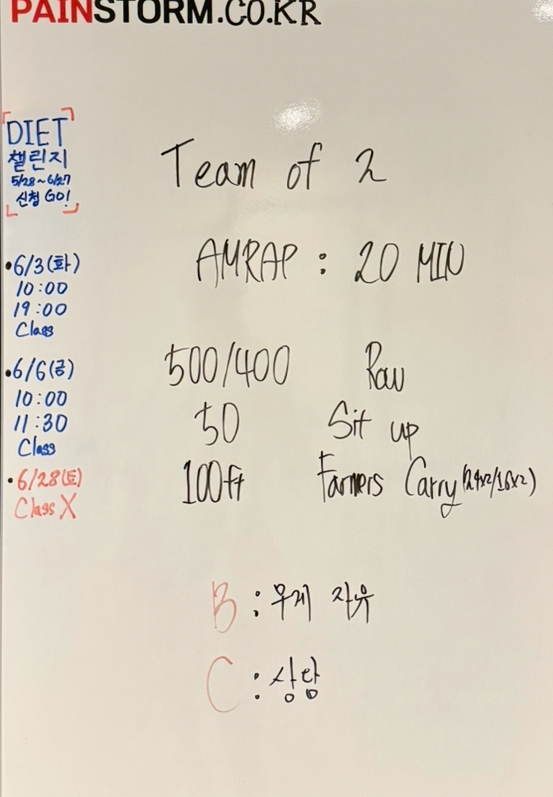 PAINSTORM.CO.KR
DIET
챌린지
5/28~6/27
신청 GO!
•6/3(화)
10:00
19:00
Class
•6/6(금)
10:00
11:30
Class
•6/28(토)
Class X
Team of 2
AMRAP : 20 MIN
500/400 Row
50 Sit up
100ft Farmers Carry (24x2/16x2)
B : 무게 자유
C : 상담